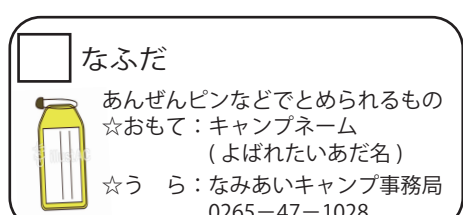 なふだ
あんぜんピンなどでとめられるもの
☆おもて：キャンプネーム
(よばれたいあだ名)
☆う　ら：なみあいキャンプ事務局
0265－47－1028